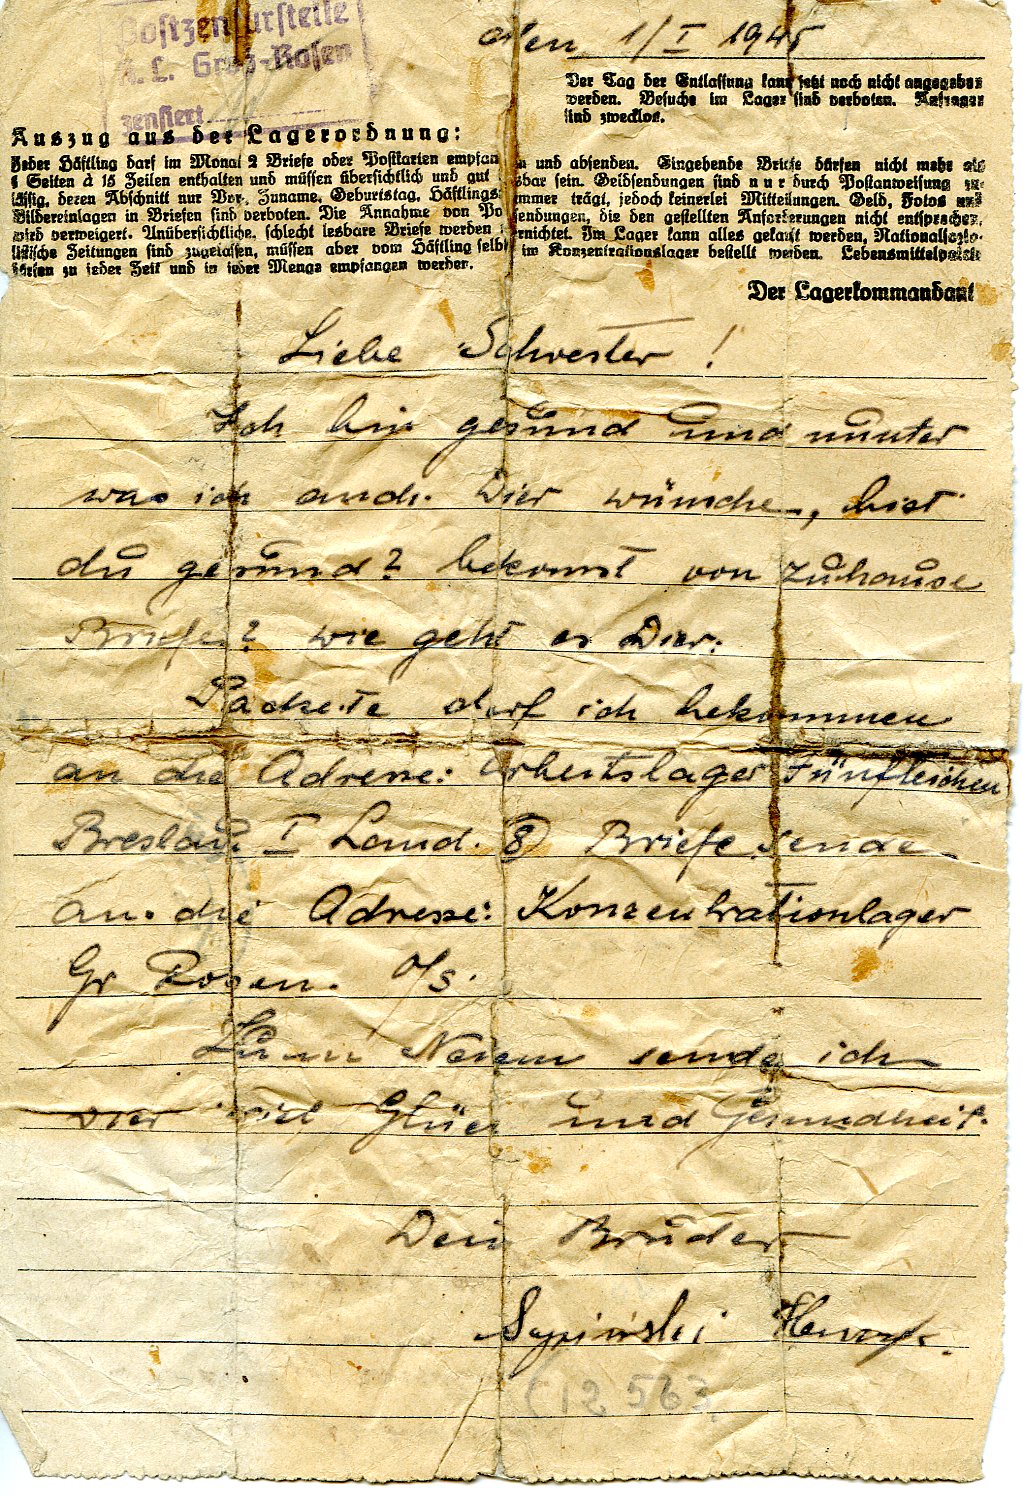 Postzensurstelle
K. L. Groß-Rosen
zensiert
den 1/I 1945
Der Tag der Entlassung kann jetzt noch nicht angegeben
werden. Besuche im Lager sind verboten. Anfragen
sind zwecklos.
Auszug aus der Lagerordnung:
Jeder Häftling darf im Monat 2 Briefe oder Postkarten empfangen und absenden. Eingehende Briefe dürfen nicht mehr als
4 Seiten à 15 Zeilen enthalten und müssen übersichtlich und gut lesbar sein. Geldsendungen sind nur durch Postanweisung zu-
lässig, deren Abschnitt nur Vor-, Zuname, Geburtstag, Häftlingsnummer trägt, jedoch keinerlei Mitteilungen. Geld, Fotos und
Bildereinlagen in Briefen sind verboten. Die Annahme von Postsendungen, die den gestellten Anforderungen nicht entsprechen,
wird verweigert. Unübersichtliche, schlecht lesbare Briefe werden vernichtet. Im Lager kann alles gekauft werden, Nationalsozia-
listische Zeitungen sind zugelassen, müssen aber vom Häftling selbst im Konzentrationslager bestellt werden. Lebensmittelpakete
dürfen zu jeder Zeit und in jeder Menge empfangen werden.
Der Lagerkommandant
Liebe Schwester!
Ich bin gesund und munter
was ich auch Dier wünche, bist
du gesund? bekomst von zuhause
Briefe? wie geht es Dier.
Packete darf ich bekommen
an die Adresse: Arbeitslager Fünfteichen
Breslau I Land. 8) Briefe sende
an die Adresse: Konzentrationlager
Gr Rosen. O/S.
Zum Neuem sende ich
Dier viel Glück und Gesundheit.
Dein Bruder
(12 563